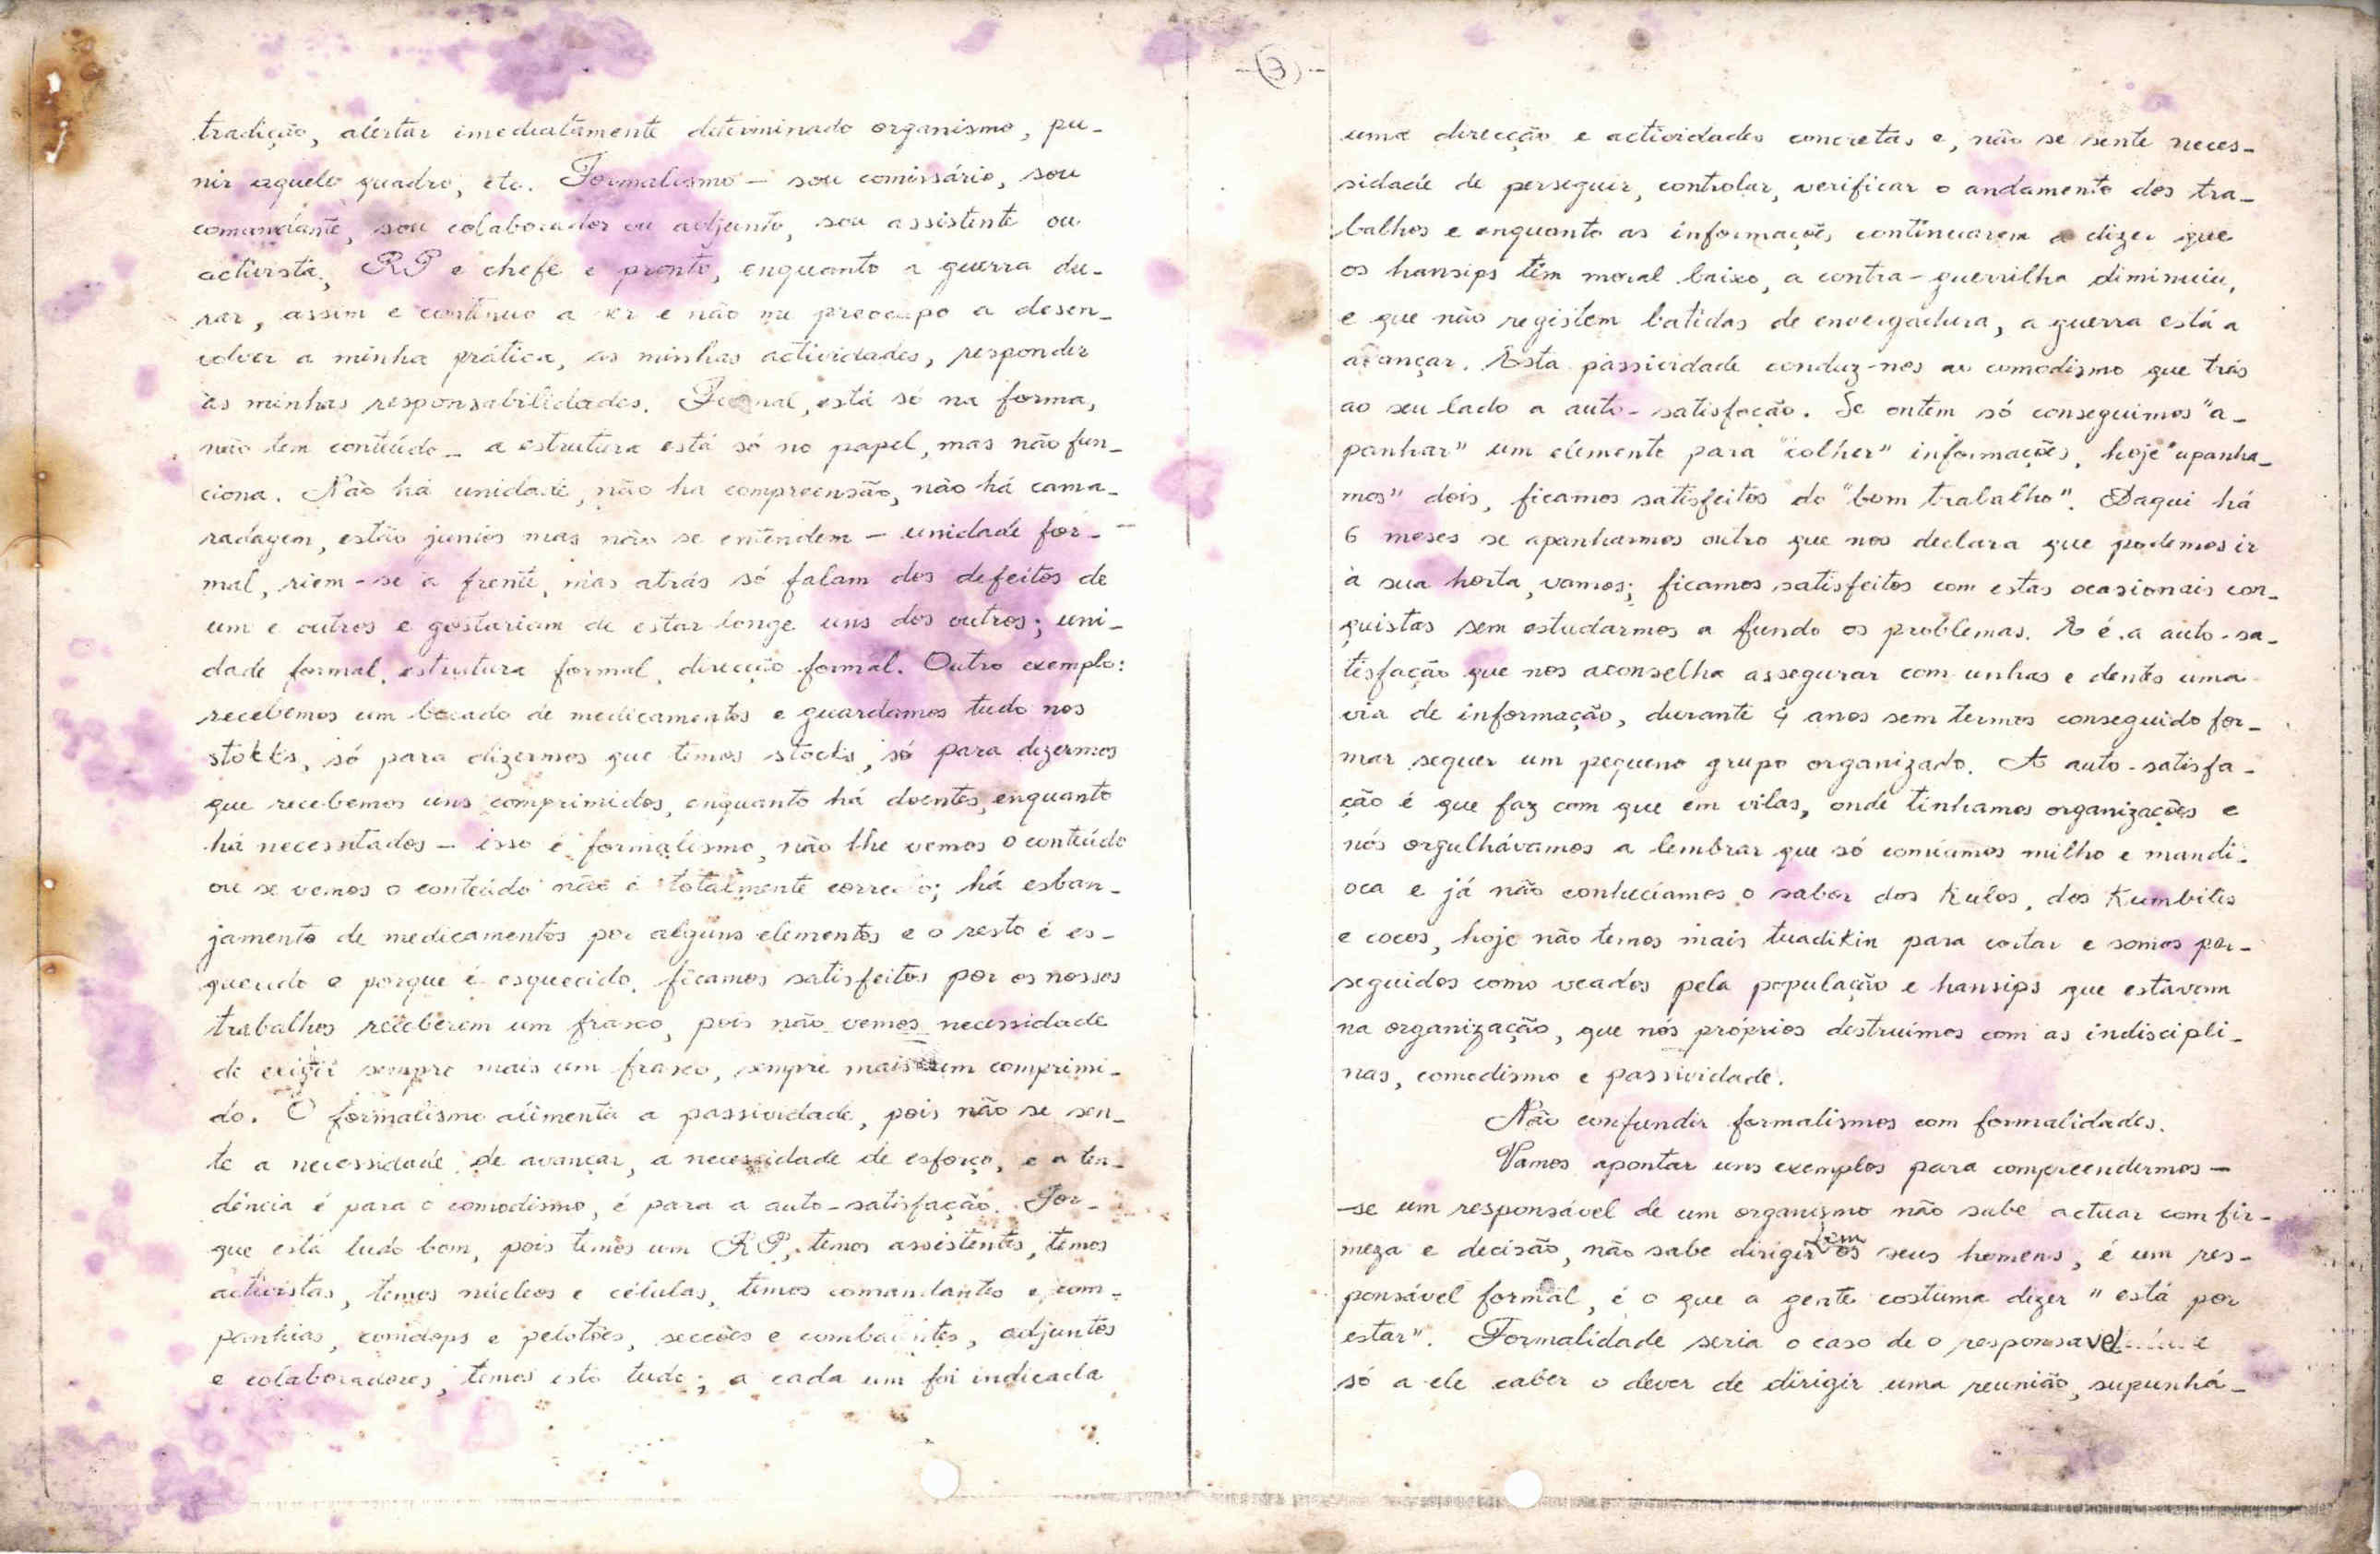 tradição, alertar imediatamente determinado organismo, pu-
nir aquele quadro, etc. Formalismo - sou comissário, sou
comandante, sou colaborador ou adjunto, sou assistente ou
activista, RP e chefe e pronto, enquanto a guerra du-
rar, assim e continuo a ser e não me preocupo a desen-
volver a minha prática, as minhas actividades, responder
às minhas responsabilidades. Formal, está só na forma,
não tem conteúdo - a estrutura está só no papel, mas não fun-
ciona. Não há unidade, não ha compreensão, não há cama-
radagem, estão juntos mas não se entendem - unidade for-
mal, riem-se à frente, mas atrás só falam dos defeitos de
um e outros e gostariam de estar longe uns dos outros; uni-
dade formal, estrutura formal, direcção formal. Outro exemplo:
recebemos um bocado de medicamentos e guardamos tudo nos
stokks, só para dizermos que temos stocks, só para dizermos
que recebemos uns comprimidos, enquanto há doentes, enquanto
há necessitados - isso é formalismo, não lhe vemos o conteúdo
ou se vemos o conteúdo não é totalmente correcto; há esban-
jamento de medicamentos por alguns elementos e o resto é es-
quecido e porque é esquecido, ficamos satisfeitos por os nossos
trabalhos receberem um frasco, pois não vemos necessidade
de exigir sempre mais um frasco, sempre mais um comprimi-
do. O formalismo alimenta a passividade, pois não se sen-
te a necessidade de avançar, a necessidade de esforço, e a ten-
dência é para o comodismo, é para a auto-satisfação. Por-
que está tudo bom, pois temos um RP, temos assistentes, temos
activistas, temos núcleos e células, temos comandantes e com-
panhias, comdops e pelotões, secções e combatentes, adjuntos
e colaboradores, temos isto tudo; a cada um foi indicada
-(3)-
uma direcção e actividades concretas e, não se sente neces-
sidade de perseguir, controlar, verificar o andamento dos tra-
balhos e enquanto as informações continuarem a dizer que
os hansips têm moral baixo, a contra-guerrilha diminuiu,
e que não registem batidas de envergadura, a guerra está a
avançar. Esta passividade conduz-nos ao comodismo que trás
ao seu lado a auto-satisfação. Se ontem só conseguimos "a-
panhar" um elemento para "colher" informações, hoje "apanha-
mos" dois, ficamos satisfeitos do "bom trabalho". Daqui há
6 meses se apanharmos outro que nos declara que podemos ir
à sua horta, vamos; ficamos satisfeitos com estas ocasionais con-
quistas sem estudarmos a fundo os problemas. E é a auto-sa-
tisfação que nos aconselha assegurar com unhas e dentes uma
via de informação, durante 4 anos sem termos conseguido for-
mar sequer um pequeno grupo organizado. A auto-satisfa-
ção é que faz com que em vilas, onde tinhamos organizações e
nós orgulhávamos a lembrar que só comíamos milho e mandi-
oca e já não conhecíamos o sabor dos kulos, dos Kumbilis
e cocos, hoje não temos mais tuadikin para cortar e somos per-
seguidos como veados pela população e hansips que estavam
na organização, que nós próprios destruímos com as indiscipli-
nas, comodismo e passividade.
Não confundir formalismos com formalidades.
Vamos apontar uns exemplos para compreendermos -
-se um responsável de um organismo não sabe actuar com fir-
meza e decisão, não sabe dirigir bem os seus homens, é um res-
ponsável formal, é o que a gente costuma dizer "está por
estar". Formalidade seria o caso de o responsavel e
só a ele caber o dever de dirigir uma reunião, supunhá-